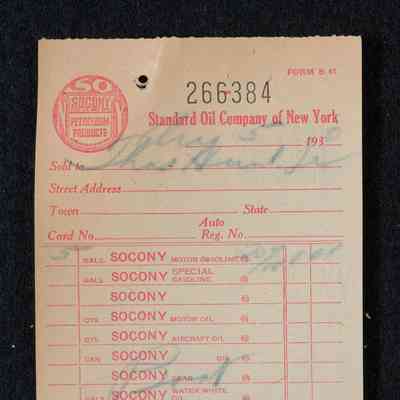 FORM B 41
SO
SOCONY
PETROLEUM
PRODUCTS
266384
Standard Oil Company of New York
5 1930
Sold to Thos Hunt Jr
Street Address
Town State
Auto
Card No. Reg. No.
5 GALS SOCONY MOTOR GASOLINE @
GALS SOCONY SPECIAL GASOLINE @
SOCONY @
QTS SOCONY MOTOR OIL @
QTS SOCONY AIRCRAFT OIL @
CAN SOCONY OIL @
SOCONY GEAR @
GALS SOCONY WATER WHITE OIL @